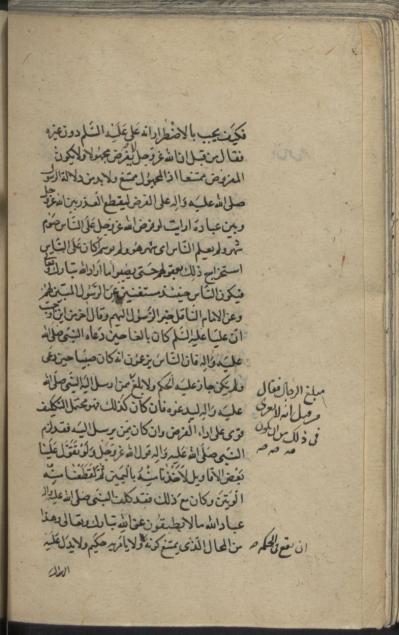 فكيف يجب بالاضطرار انه علي عليه السلم دون غيره
فقال من قبل ان الله عز وجل لا يفرض مجهولا ولا يكون
المفروض ممتنعا اذ المجهول ممتنع ولا بد من دلالة الرسول
صلى الله عليه واله على الفرض ليقطع العذر بين الله عز وجل
وبين عباده ارايت لو فرض الله عز وجل على الناس صوم
شهر ولم يعلم الناس اي شهر هو ولم يوسم كان على الناس
استخراج ذلك بعقولهم حتى يصيبوا ما اراد الله تبارك وتعالى
فيكون الناس حينئذ مستغنين عن الرسول المبين لهم
وعن الامام الناقل خبر الرسول اليهم وقال اخر من اين
ان عليا عليه السلم كان بالغا حين دعاه النبي صلى الله
عليه واله فان الناس يزعمون انه كان صبيا حين دعي
ولم يكن جاز عليه الحكم ولا بلغ من ارسل اليه النبي صلى الله
عليه واله ليدعوه فان كان كذلك فهو يحتمل التكليف
قوي على اداء الفرض وان كان ممن يرسل اليه فقد لزم
النبي صلى الله عليه واله قول الله عز وجل ولو تقول علينا
بعض الاقاويل لاخذنا منه باليمين ثم لقطعنا منه
الوتين وكان مع ذلك فقد كلف النبي صلى الله عليه واله
عباد الله ما لا يطيقون عن الله تبارك وتعالى وهذا
من المحال الذي يمتنع كونه ولا يامر به حكيم ولا يدل عليه
الرسول
مبلغ الرجال فقال
من قبل انه لا يعرى
في ذلك من ان يكون
ان يقع في الحكمة